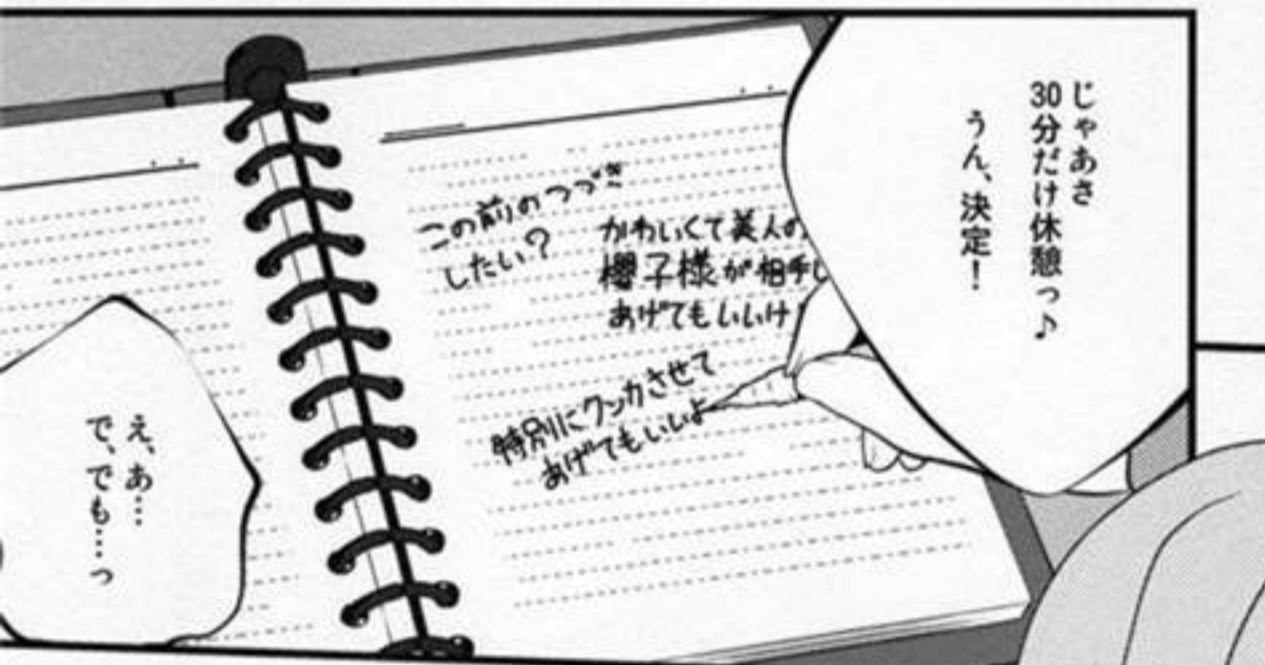 じゃあさ
30分だけ休憩っ♪
うん、決定！
この前のつづき
したい？
かわいくて美人の
櫻子様が相手し
あげてもいいけ
特別にクンカさせて
あげてもいいよ
え、あ…
で、でも…っ